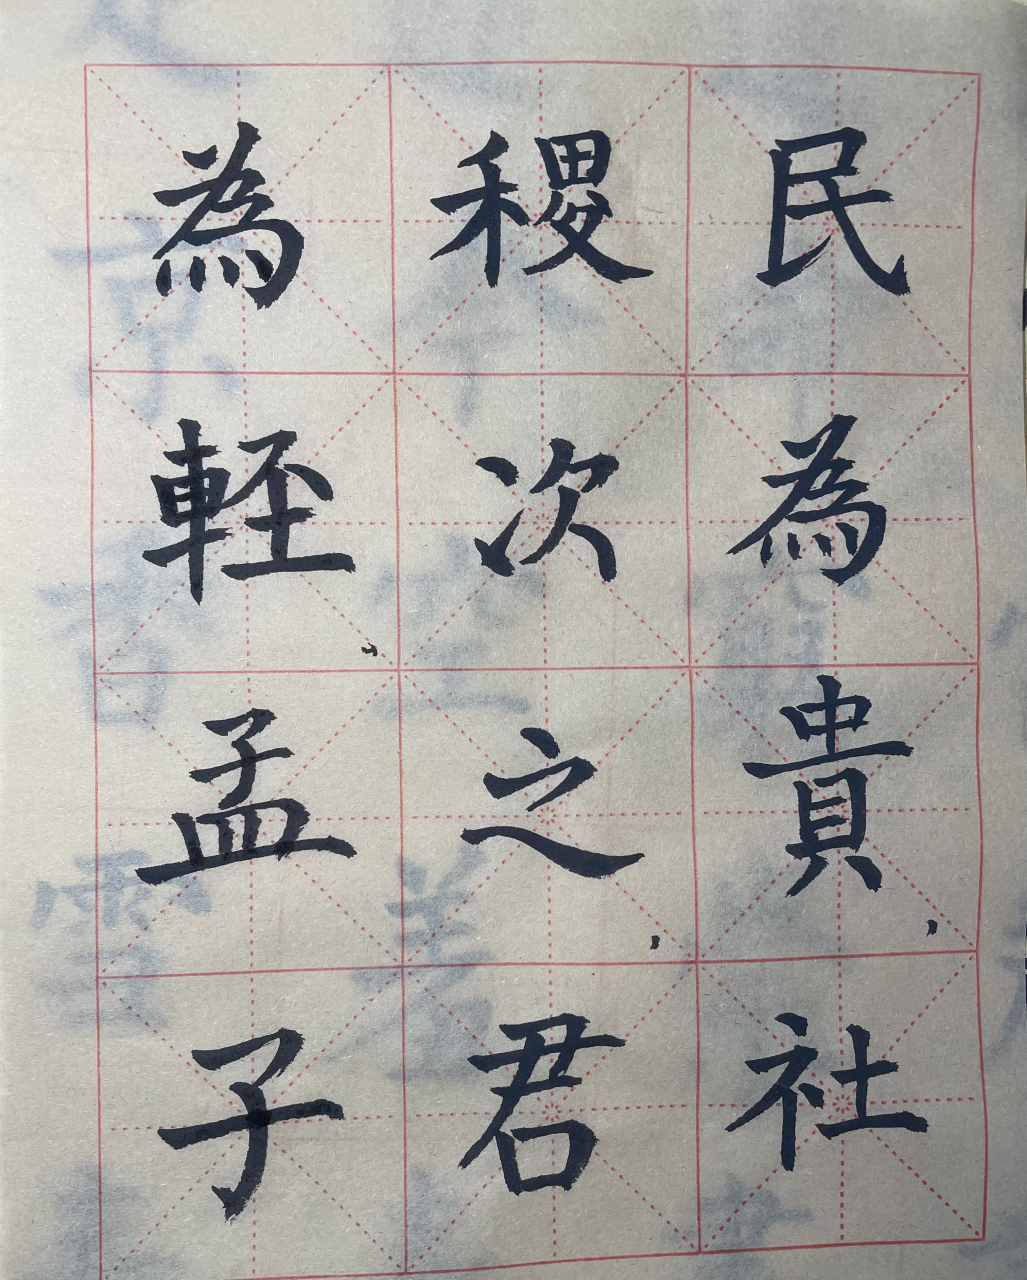 民為貴，社
稷次之，君
為輕，孟子